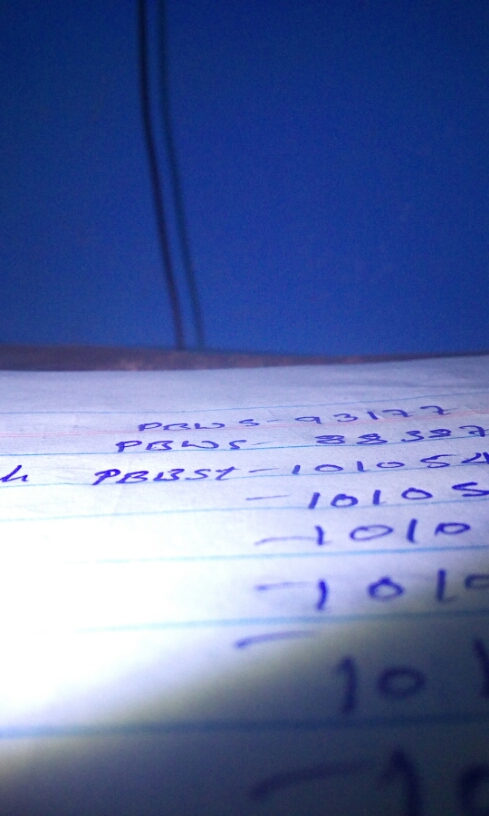 PBWS-93177
PBWS- 88387
h PBBST-101054
-10105
-1010
-1010
- 101
-10